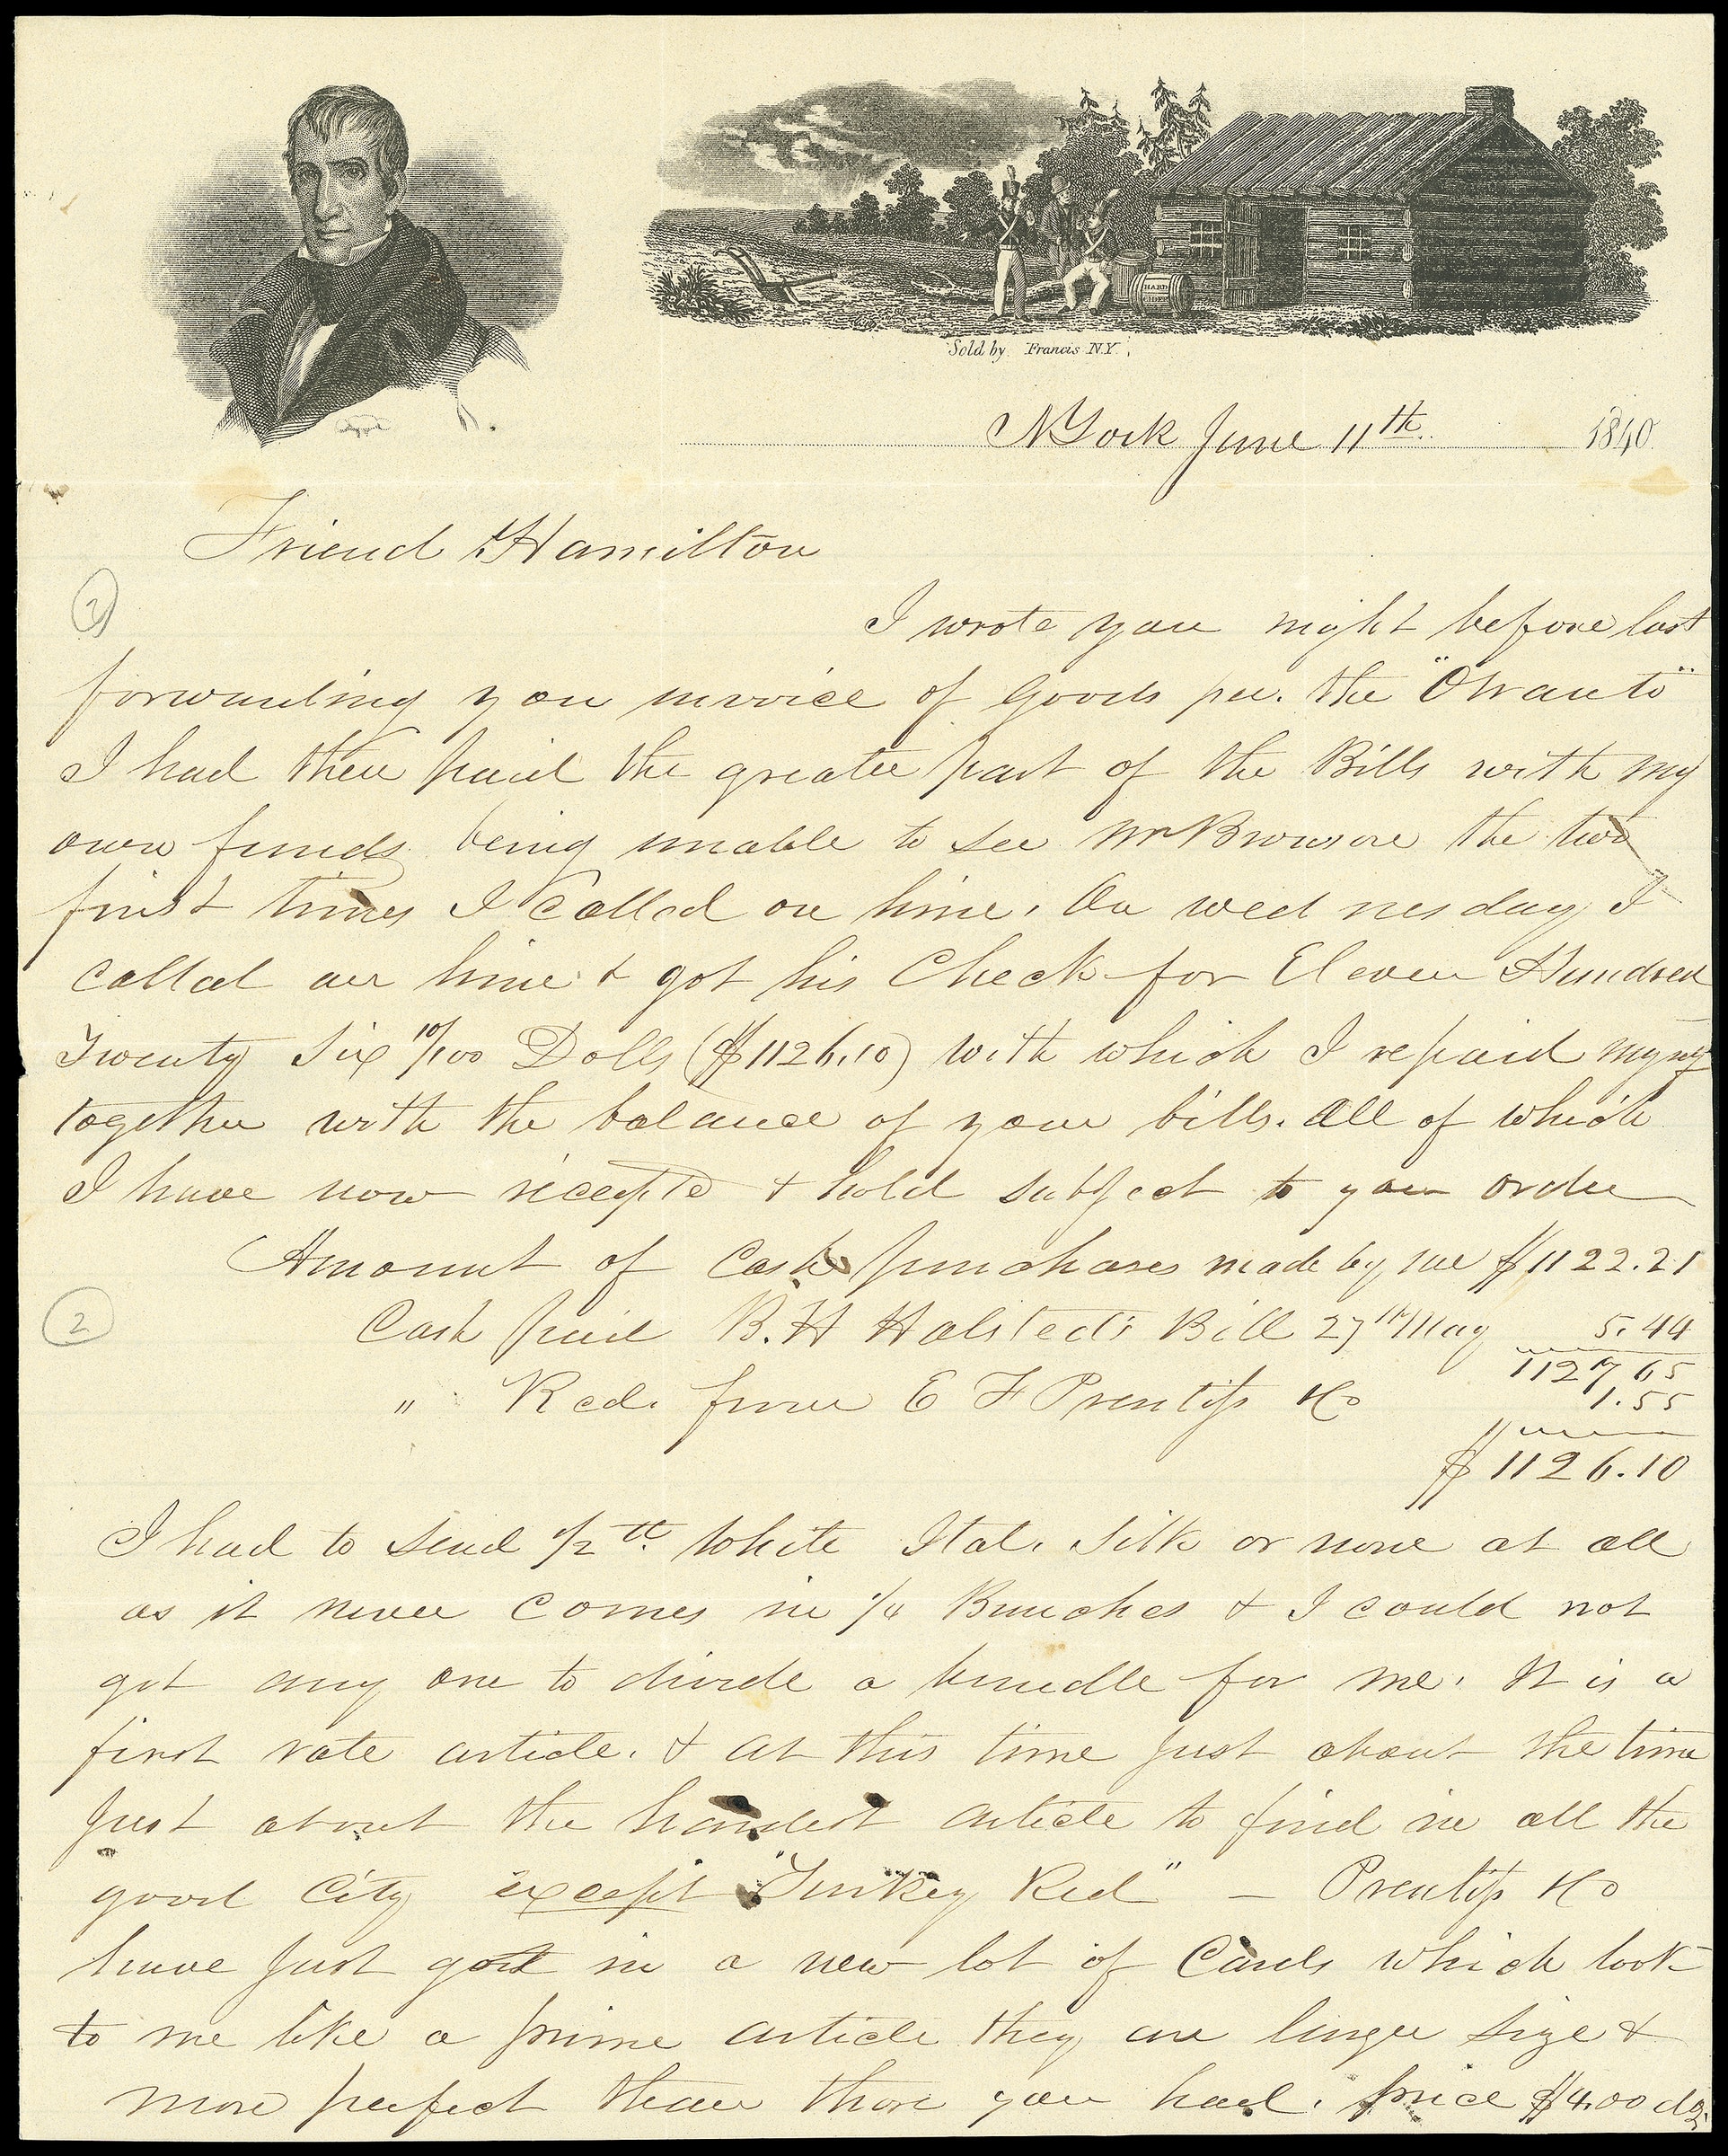 HARD
CIDER
Sold by Francis N.Y.
N York June 11th 1840
Friend Hamilton
2
I wrote you night before last
forwarding you invoice of Goods per. the "Oswanto"
I had then paid the greater part of the Bills with my
own funds being unable to see Mr Brownson the two
first times I called on him. On wednesday I
called on him & got his Check for Eleven Hundred
Twenty Six 10/100 Dolls ($1126.10) with which I repaid myself
together with the balance of your bills. All of which
I have now receipted & hold subject to your order
Amount of Cash purchases made by me $1122.21
2
Cash paid B. H Halsteds Bill 27th May 5.44
1127 65
" Recd. from E F Prentiss & Co 1.55
$1126.10
I had to send 1/2 lb White Ital. Silk or none at all
as it never comes in 1/4 Bunches & I could not
get any one to divide a bundle for me. It is a
first rate article. & at this time just about the time
Just about the hardest article to find in all the
good City except "Turkey Red" — Prentiss & Co
have Just got in a new lot of Cards which look
to me like a prime article they are larger size &
more perfect than those you had. price $4.00 doz